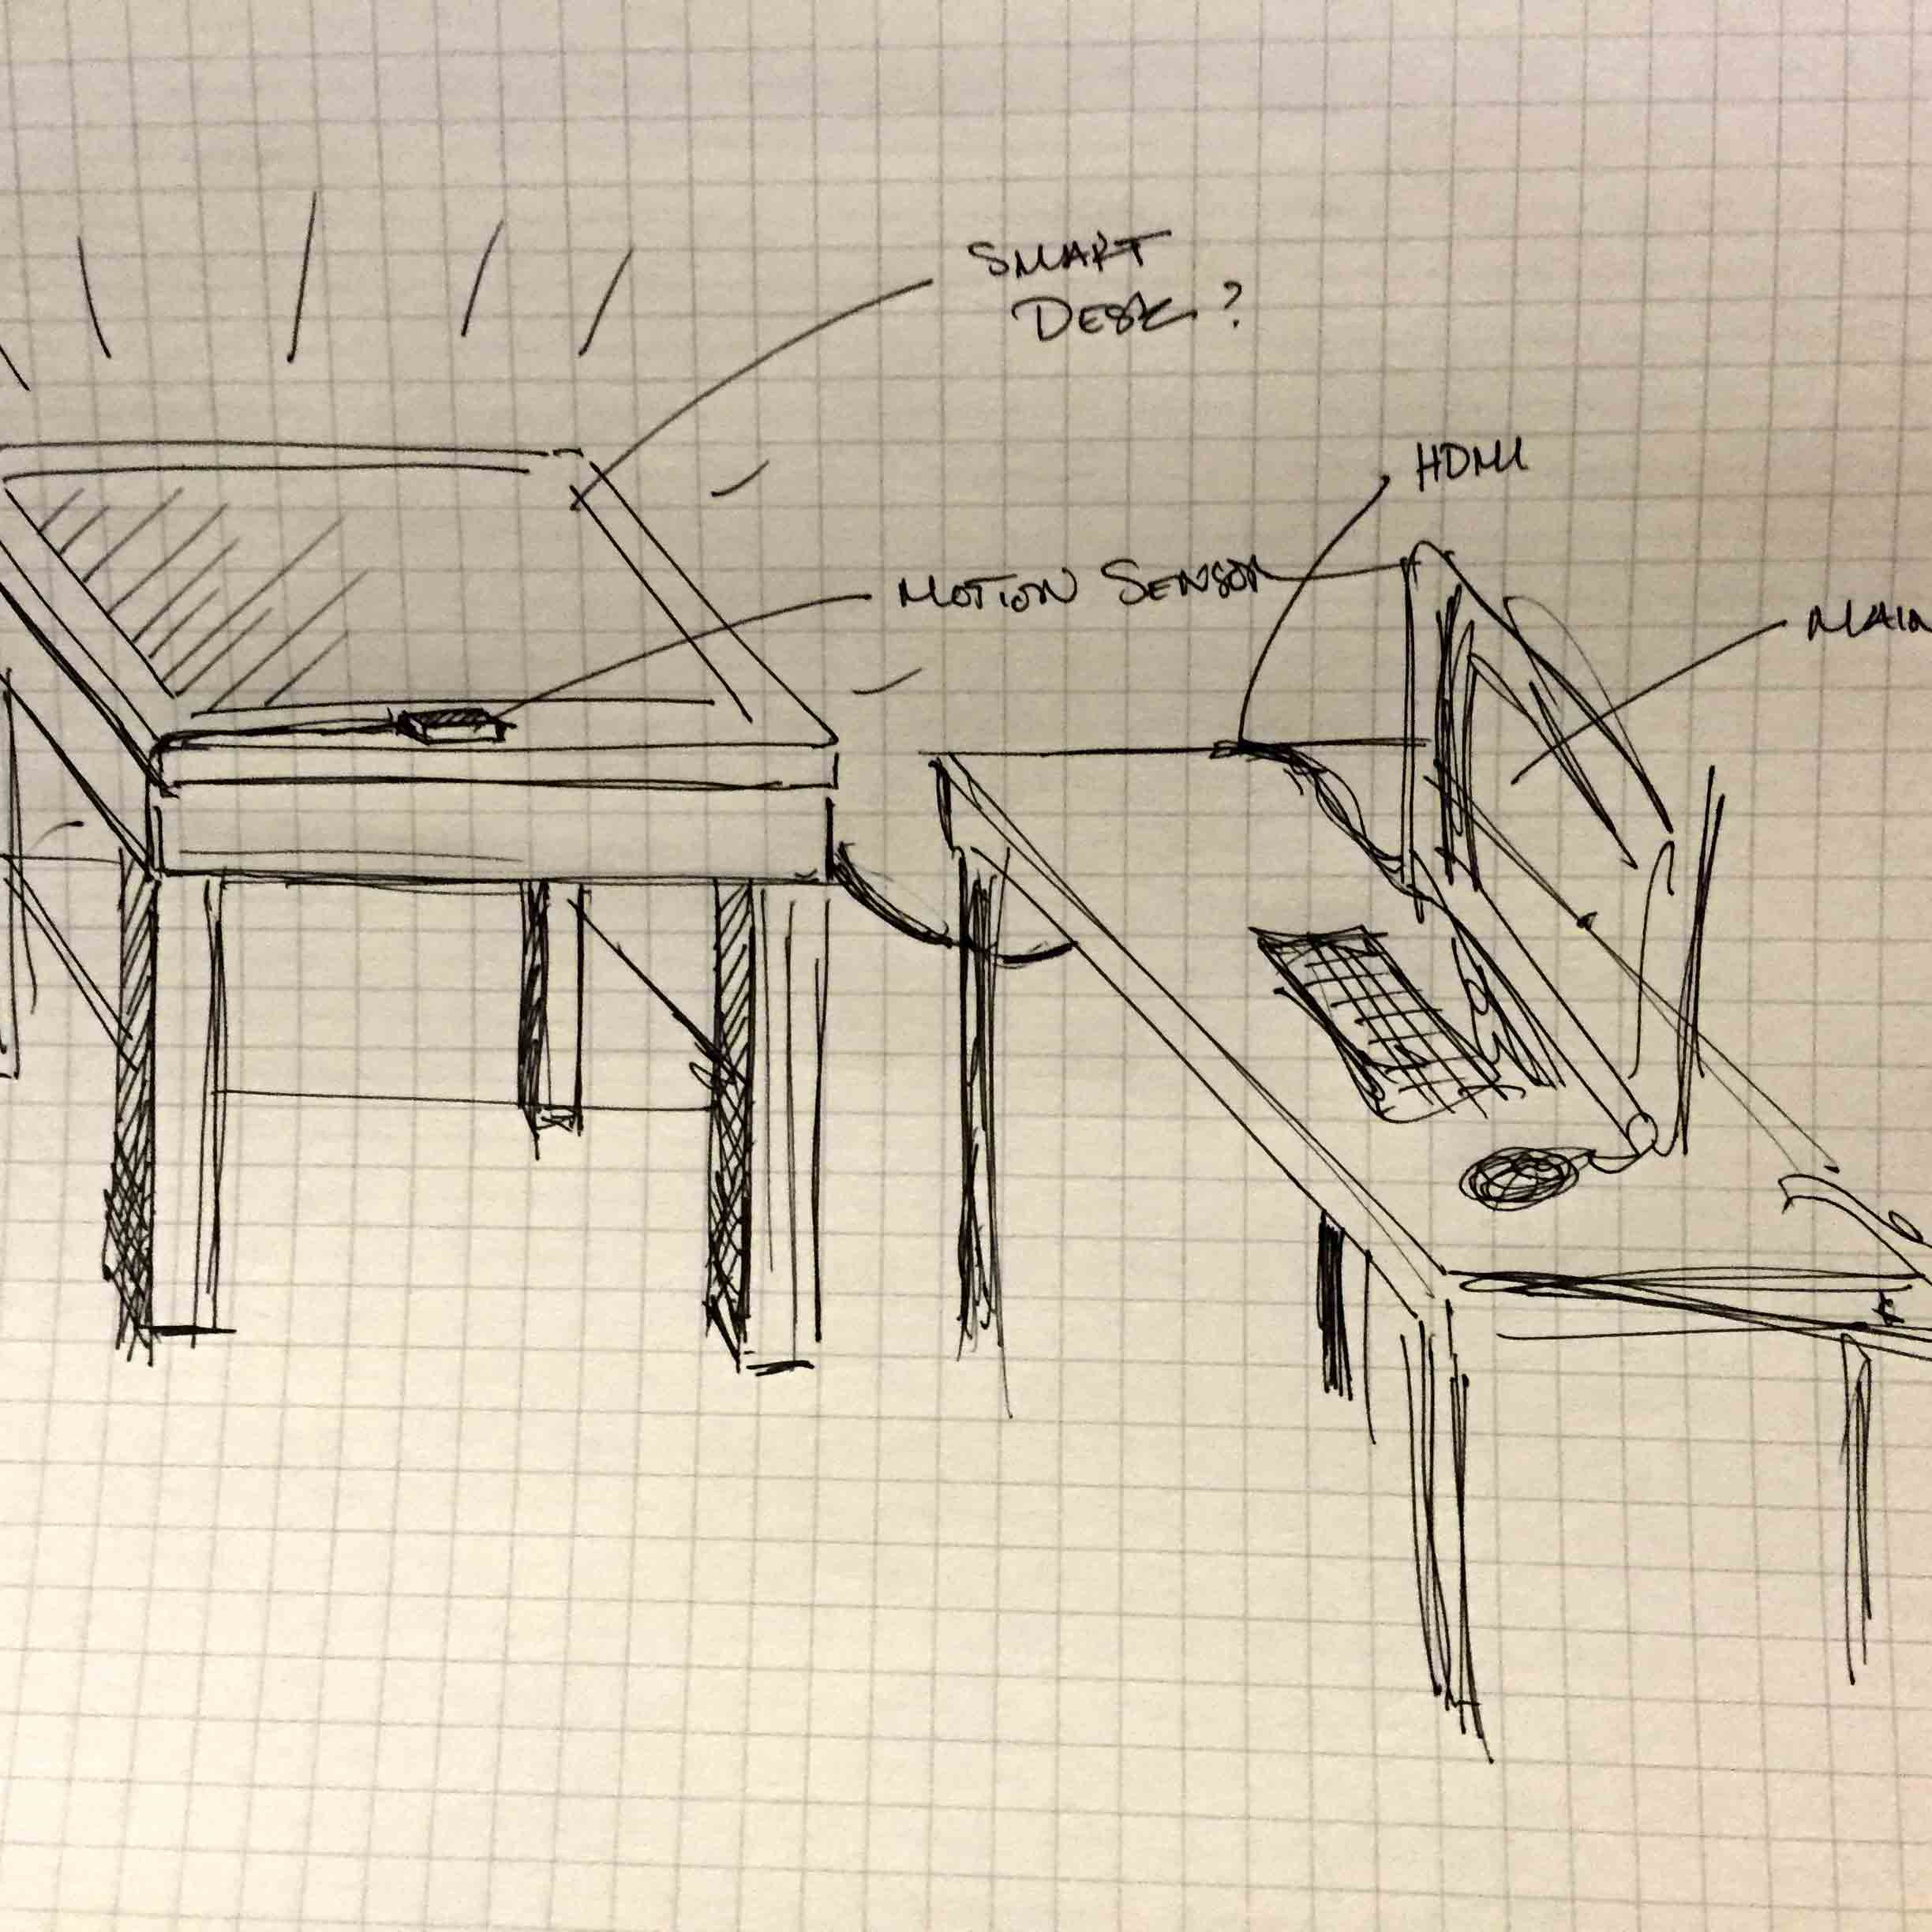 SMART
DESK?
HDMI
MOTION SENSOR
MAIN